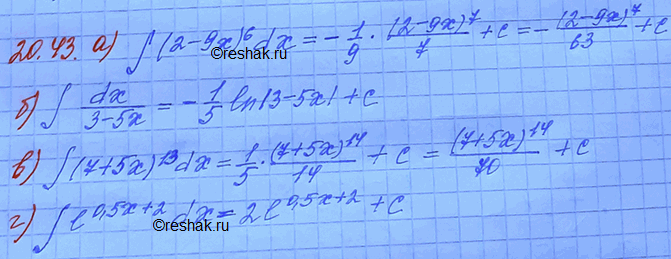 20.43. а) ∫(2-9x)⁶dx = -1/9 · (2-9x)⁷/7 + c = -(2-9x)⁷/63 + c
©reshak.ru
б) ∫ dx/(3-5x) = -1/5 ln|3-5x| + c
в) ∫(7+5x)¹³dx = 1/5 · (7+5x)¹⁴/14 + c = (7+5x)¹⁴/70 + c
г) ∫e^(0,5x+2) dx = 2e^(0,5x+2) + c
©reshak.ru